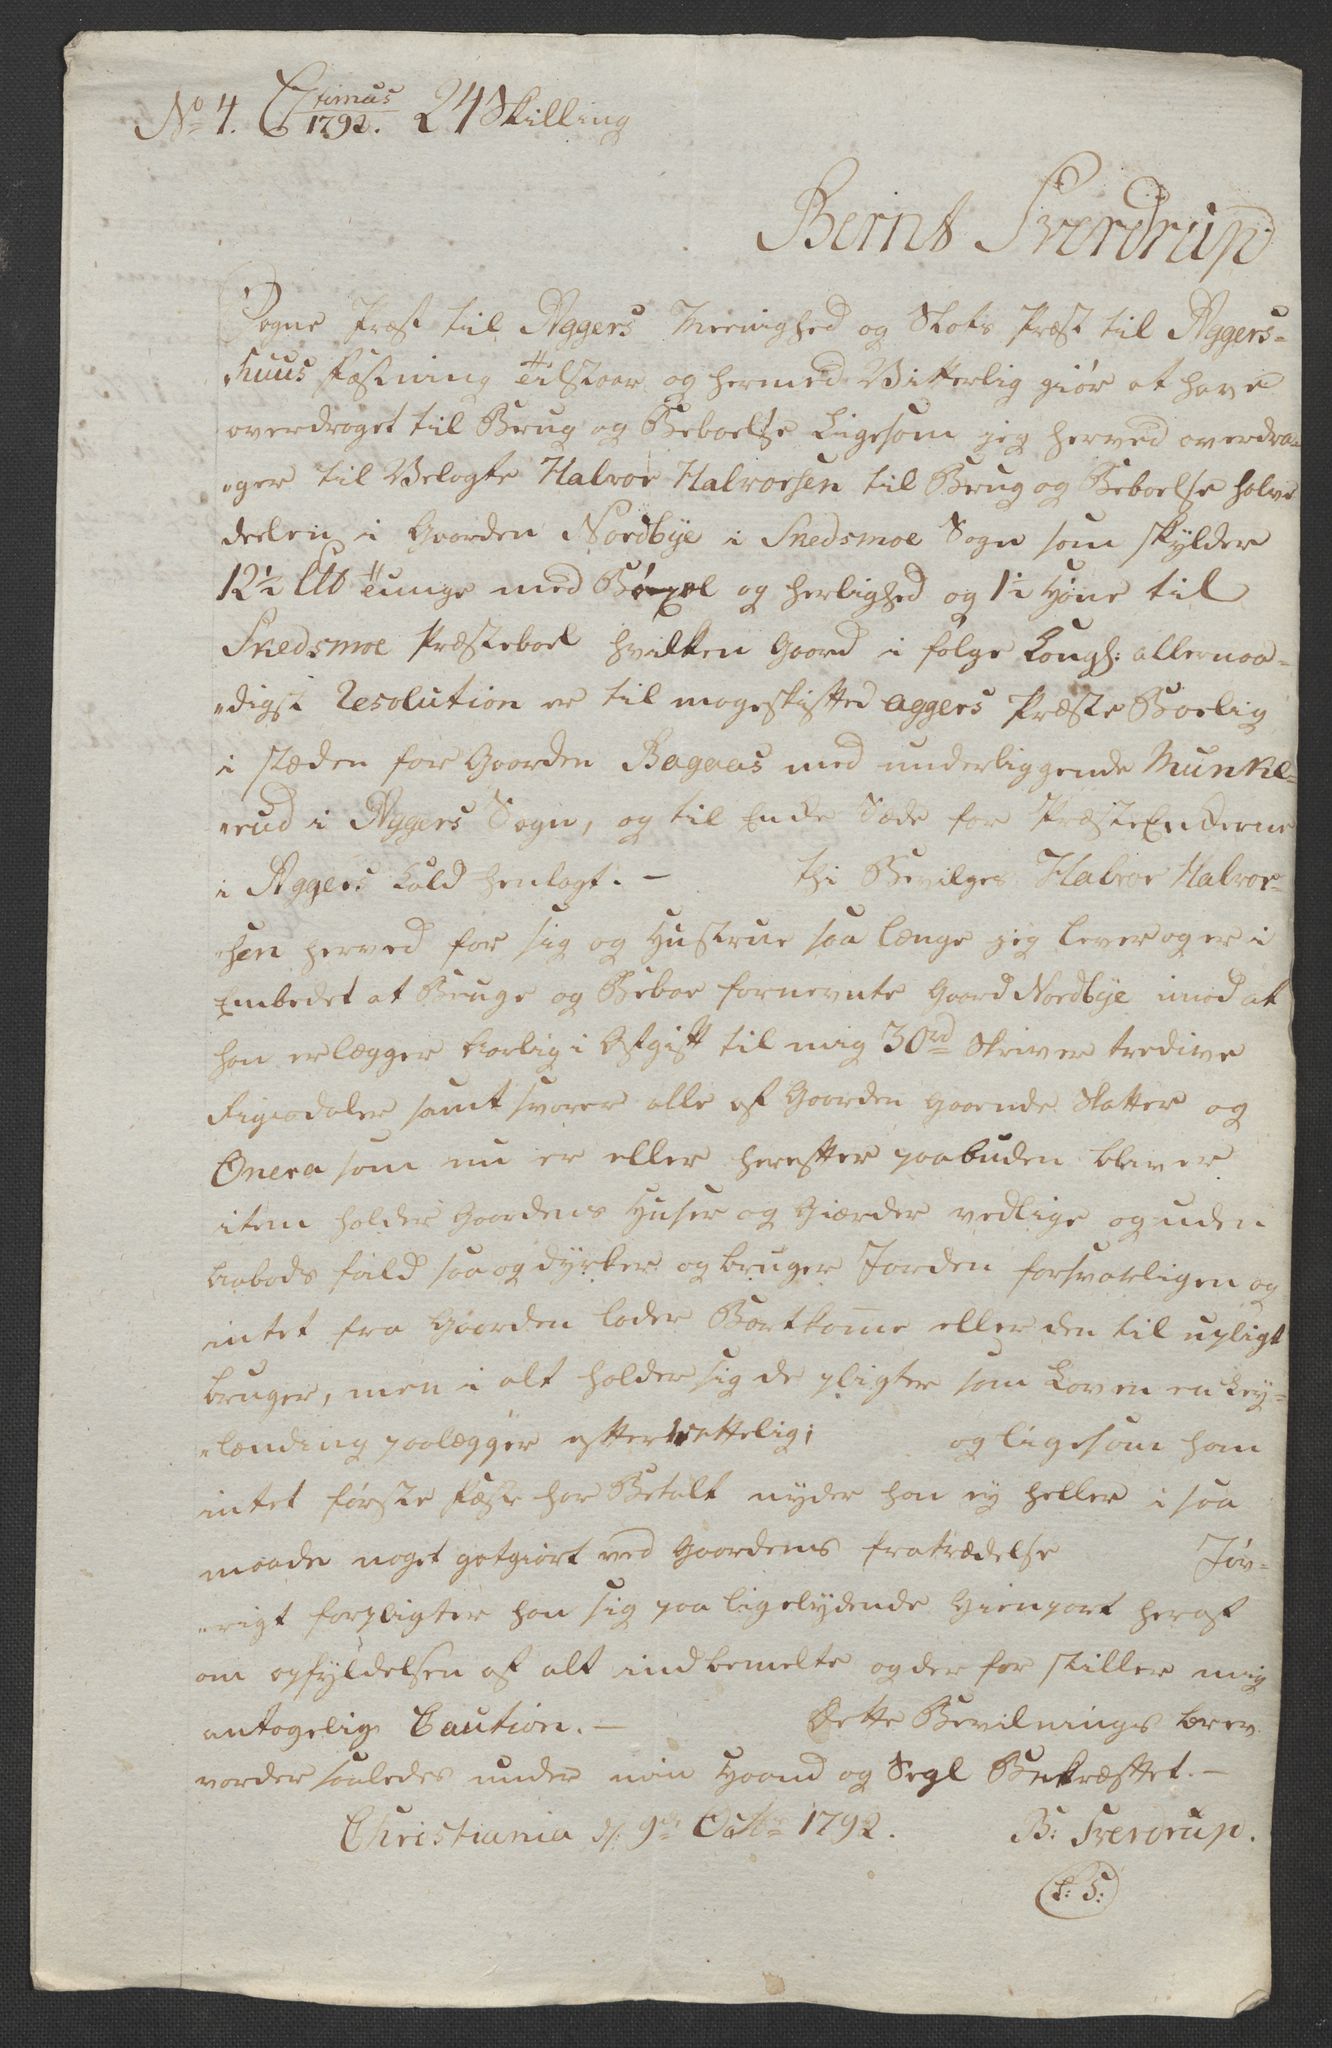 No 4. Ctimus 1792. 24 Skilling
Bernt Sverdrup
Sogne Præst til Aggers Meenighed og Slots Præst til Aggers-
huus Fæstning Tilstaar og hermed Vitterlig giør at have
overdraget til Brug og Beboelse Ligesom jeg herved overdra-
"ger til Velagte Halvor Halvorsen til Brug og Beboelse halve
deelen i Gaarden Nordbye i Skedsmoe Sogn som skylder
12½ L℔ Tunge med Bøxel og herlighed og 1½ Høne til
Skedsmoe Præsteboel hvilken Gaard i følge Kongl: allernaa-
"digst Resolution er til mageskiftted Aggers Præste Boelig
i stæden for Gaarden Bagaas med underliggende Munke-
"rud i Aggers Sogn, og til Enke Sæde for PræsteEnkerne
i Aggers Kald henlagt. – Thi Bevilges Halvor Halvor-
"sen herved for sig og Hustrue saa længe jeg lever og er i
Embedet at Bruge og Beboe fornevnte Gaard Nordbye imod at
han erlægger Aarlig i Afgift til mig 30rd Skriver tredive
Rigsdaler samt svarer alle af Gaarden gaaende Skatter og
Onera som nu er eller herefter paabuden bliver
item holder Gaardens Huser og Giærder vedlige og uden
Aabods fald saa og dyrker og bruger Jorden forsvarligen og
intet fra Gaarden lader Bortkom̄e eller den til upligt
bruger, men i alt holder sig de pligter som Loven en Ley-
"lænding paalægger efterrettelig; og ligesom han
intet første Fæste har Betalt nyder han ey heller i saa
maade noget gotgiort ved Gaardens fratrædelse Jøv-
"rigt forpligter han sig paa ligelydende Gienpart heraf
om opfyldelsen af alt indbemelte og der for stiller mig
antagelig Caution. – Dette Bevilnings brev
vorder saaledes under min Haand og Segl Bekræftet. –
Christiania d. 9de Octbr 1792. B: Sverdrup.
(L: S:)